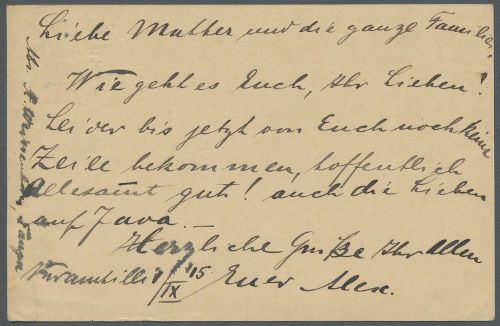 Liebe Mutter und die ganze Familie,
Wie geht es Euch, Ihr Lieben?
Leider bis jetzt von Euch noch keine
Zeile bekommen, hoffentlich
Allesamt gut! auch die Lieben
auf Java.—
Herzliche Grüße Ihr Allen
1/IX '15 Euer Alex.